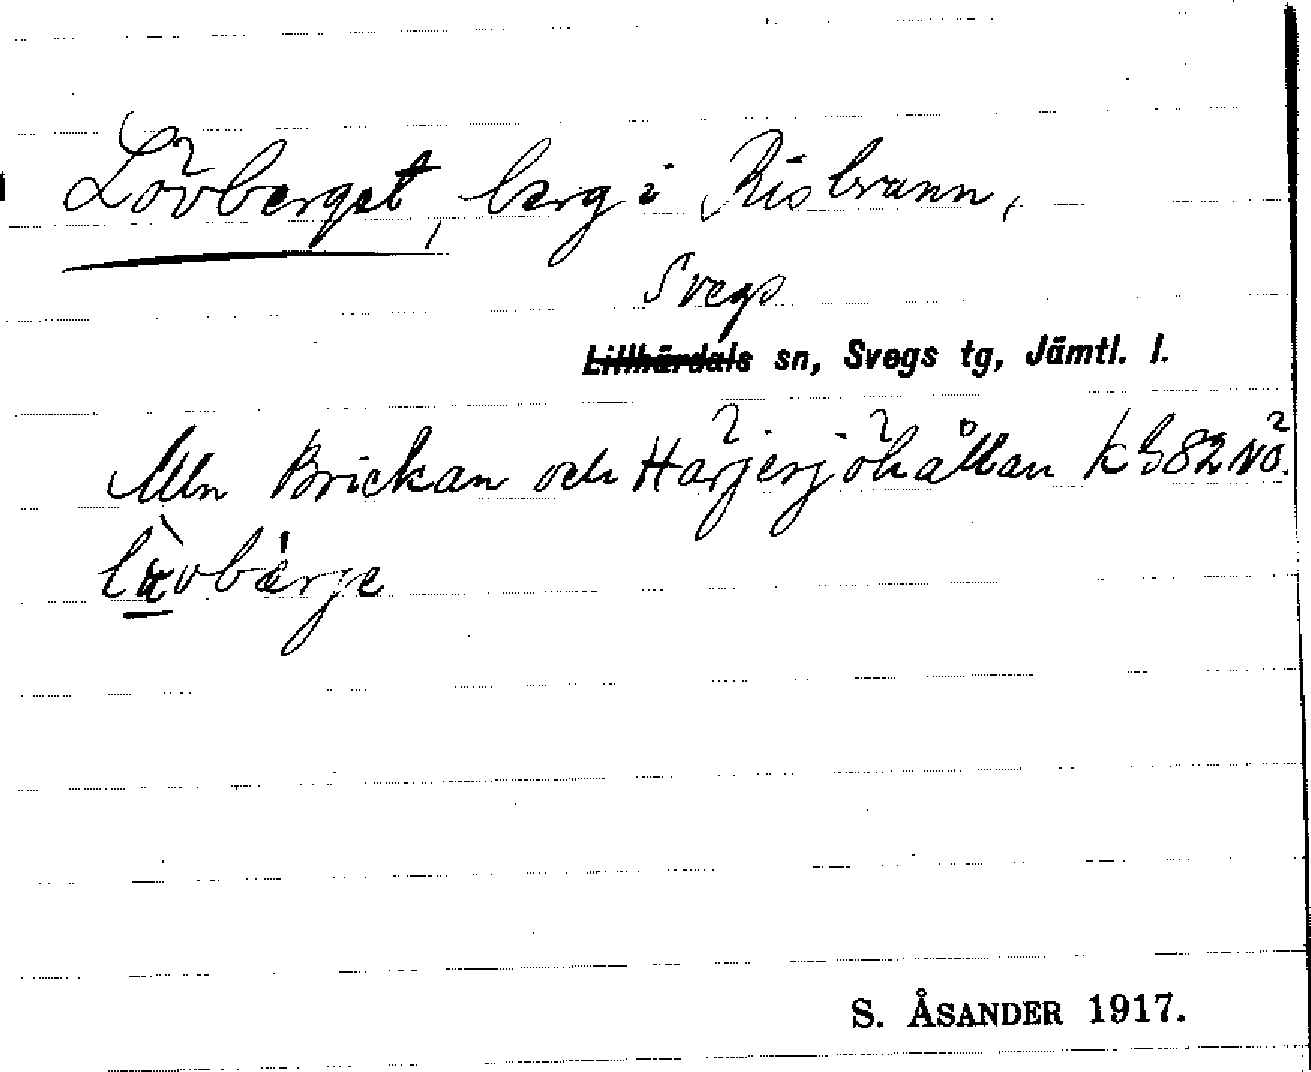 Lövberget, berg i Risbrunn,
Svegs
Lillhärdals sn, Svegs tg, Jämtl. l.
Mln Brickan och Härjesjöhållan k G82 NÖ.
lövbärje
S. ÅSANDER 1917.